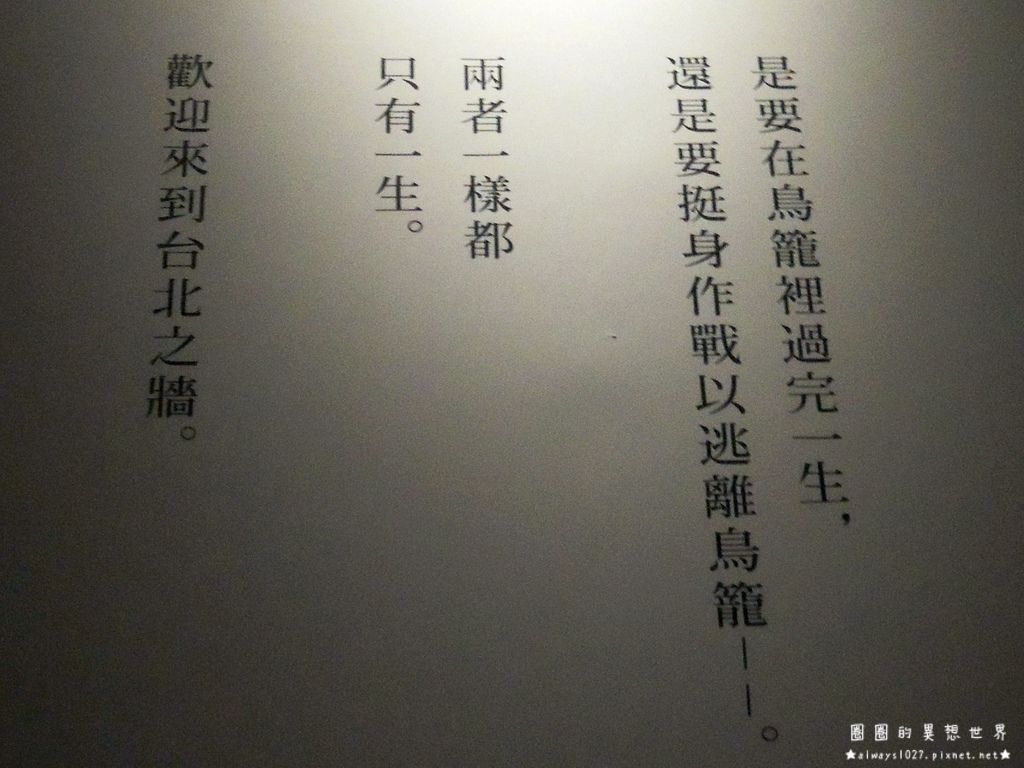 是要在鳥籠裡過完一生，
還是要挺身作戰以逃離鳥籠——。
兩者一樣都
只有一生。
歡迎來到台北之牆。
圈圈的異想世界
★always1027.pixnet.net★